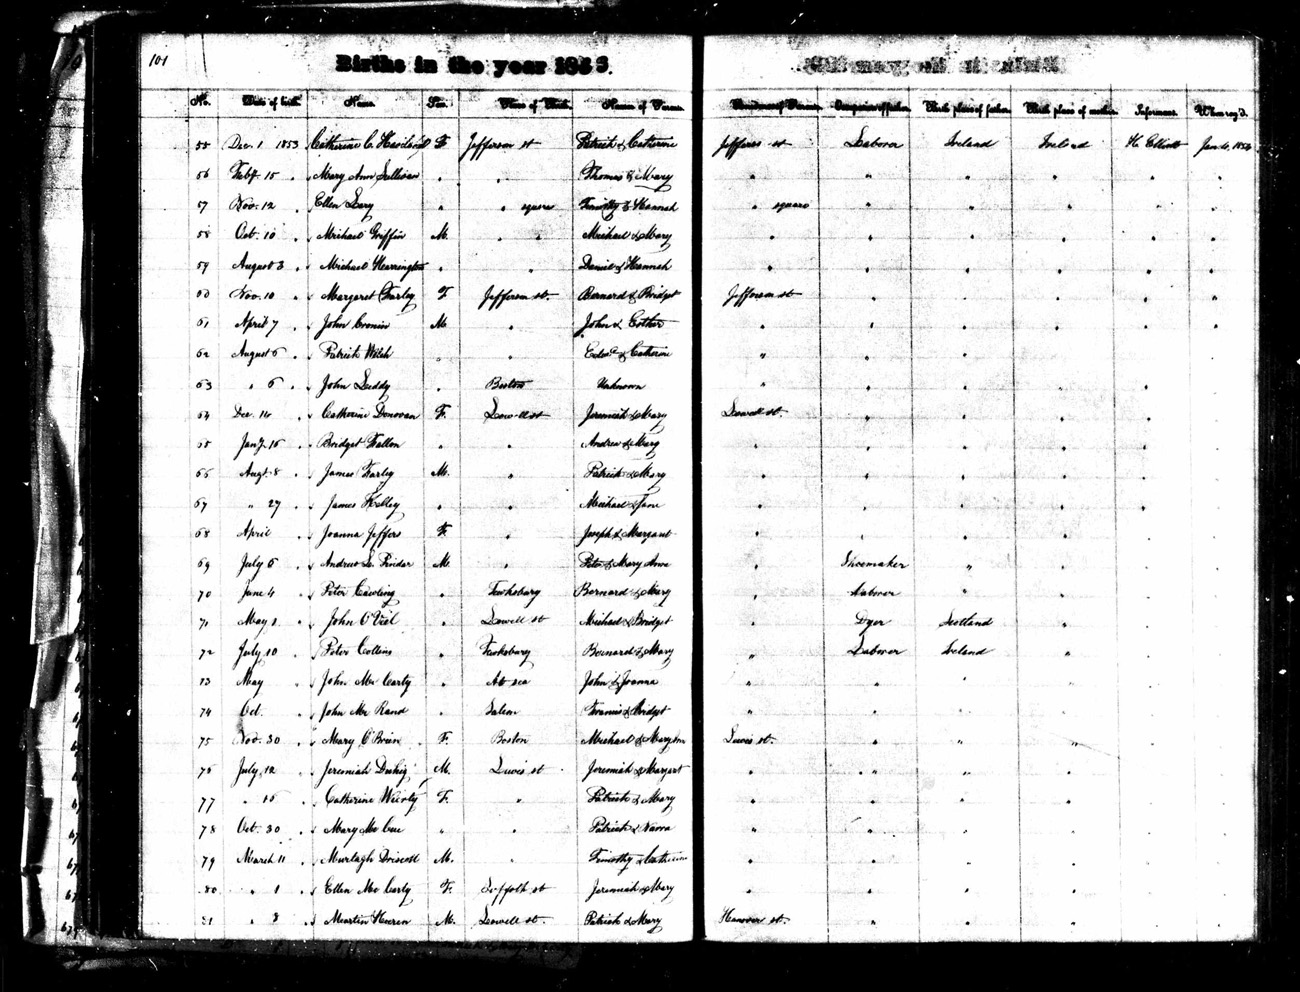 101
Births in the year 1853.
No. Date of birth. Name. Sex. Place of Birth. Names of Parents. Residence of Parents. Occupation of father. Birth place of father. Birth place of mother. Informant. When reg'd.
55 Dec. 1 1853 Catherine C. F. Jefferson st Patrick & Catherine Jefferson st Laborer Ireland Ireland H. Elliott Jan. 4, 1854
56 Feby. 15 " Mary Ann Sullivan " " Thomas & Mary " " " " " "
57 Nov. 12 " Ellen Lary " " square Timothy & Hannah " square " " " " "
58 Oct. 10 " Michael Griffin M. " " Michael & Mary " " " " " "
59 August 3 " Michael Harrington " " Daniel & Hannah " " " " " "
60 Nov. 10 " Margaret Farley F. Jefferson st. Bernard & Bridget Jefferson st " " " " "
61 April 7 " John Cronin M. " John & Esther " " " " " "
62 August 6 " Patrick Welch " " Edwd & Catherine " " " "
63 " 6 " John Leddy " Boston Unknown " " " " "
64 Dec. 14 " Catherine Donovan F. Lowell st Jeremiah & Mary Lowell st. " " " "
65 Jany. 15 " Bridget Fallon " " Andrew & Mary " " " " "
66 Augt. 8 " James Farley M. " Patrick & Mary " " " " "
67 " 27 " James Kelley " " Michael & Jane " " " " "
68 April " Joanna Jeffers F. " Joseph & Margaret " " " "
69 July 5 " Andrew L. Pindar M. " Peter & Mary Ann " Shoemaker " "
70 June 4 " Peter " Tewksbury Bernard & Mary " Laborer " "
71 May 1 " John O'Neil " Lowell st Michael & Bridget " Dyer Scotland "
72 July 10 " Peter Collins " Tewksbury Bernard & Mary " Laborer Ireland "
73 May " John Mc Carty " At sea John & Joanna " " " "
74 Oct. " John Mc Rand " Salem Francis & Bridget " " " "
75 Nov. 30 " Mary O'Brien F. Boston Michael & Mary Ann Lewis st. " " "
76 July 12 " Jeremiah M. Lewis st Jeremiah & Margaret " " " "
77 " 15 " Catherine F. " Patrick & Mary " " " "
78 Oct. 30 " Mary Mc Cue " " Patrick & " " " "
79 March 11 " Murtagh Driscoll M. " Timothy & Catherine " " " "
80 " 1 " Ellen Mc Carty F. Suffolk st Jeremiah & Mary " " " "
81 " 8 " Martin M. Lowell st. Patrick & Mary Hanover st. " " "